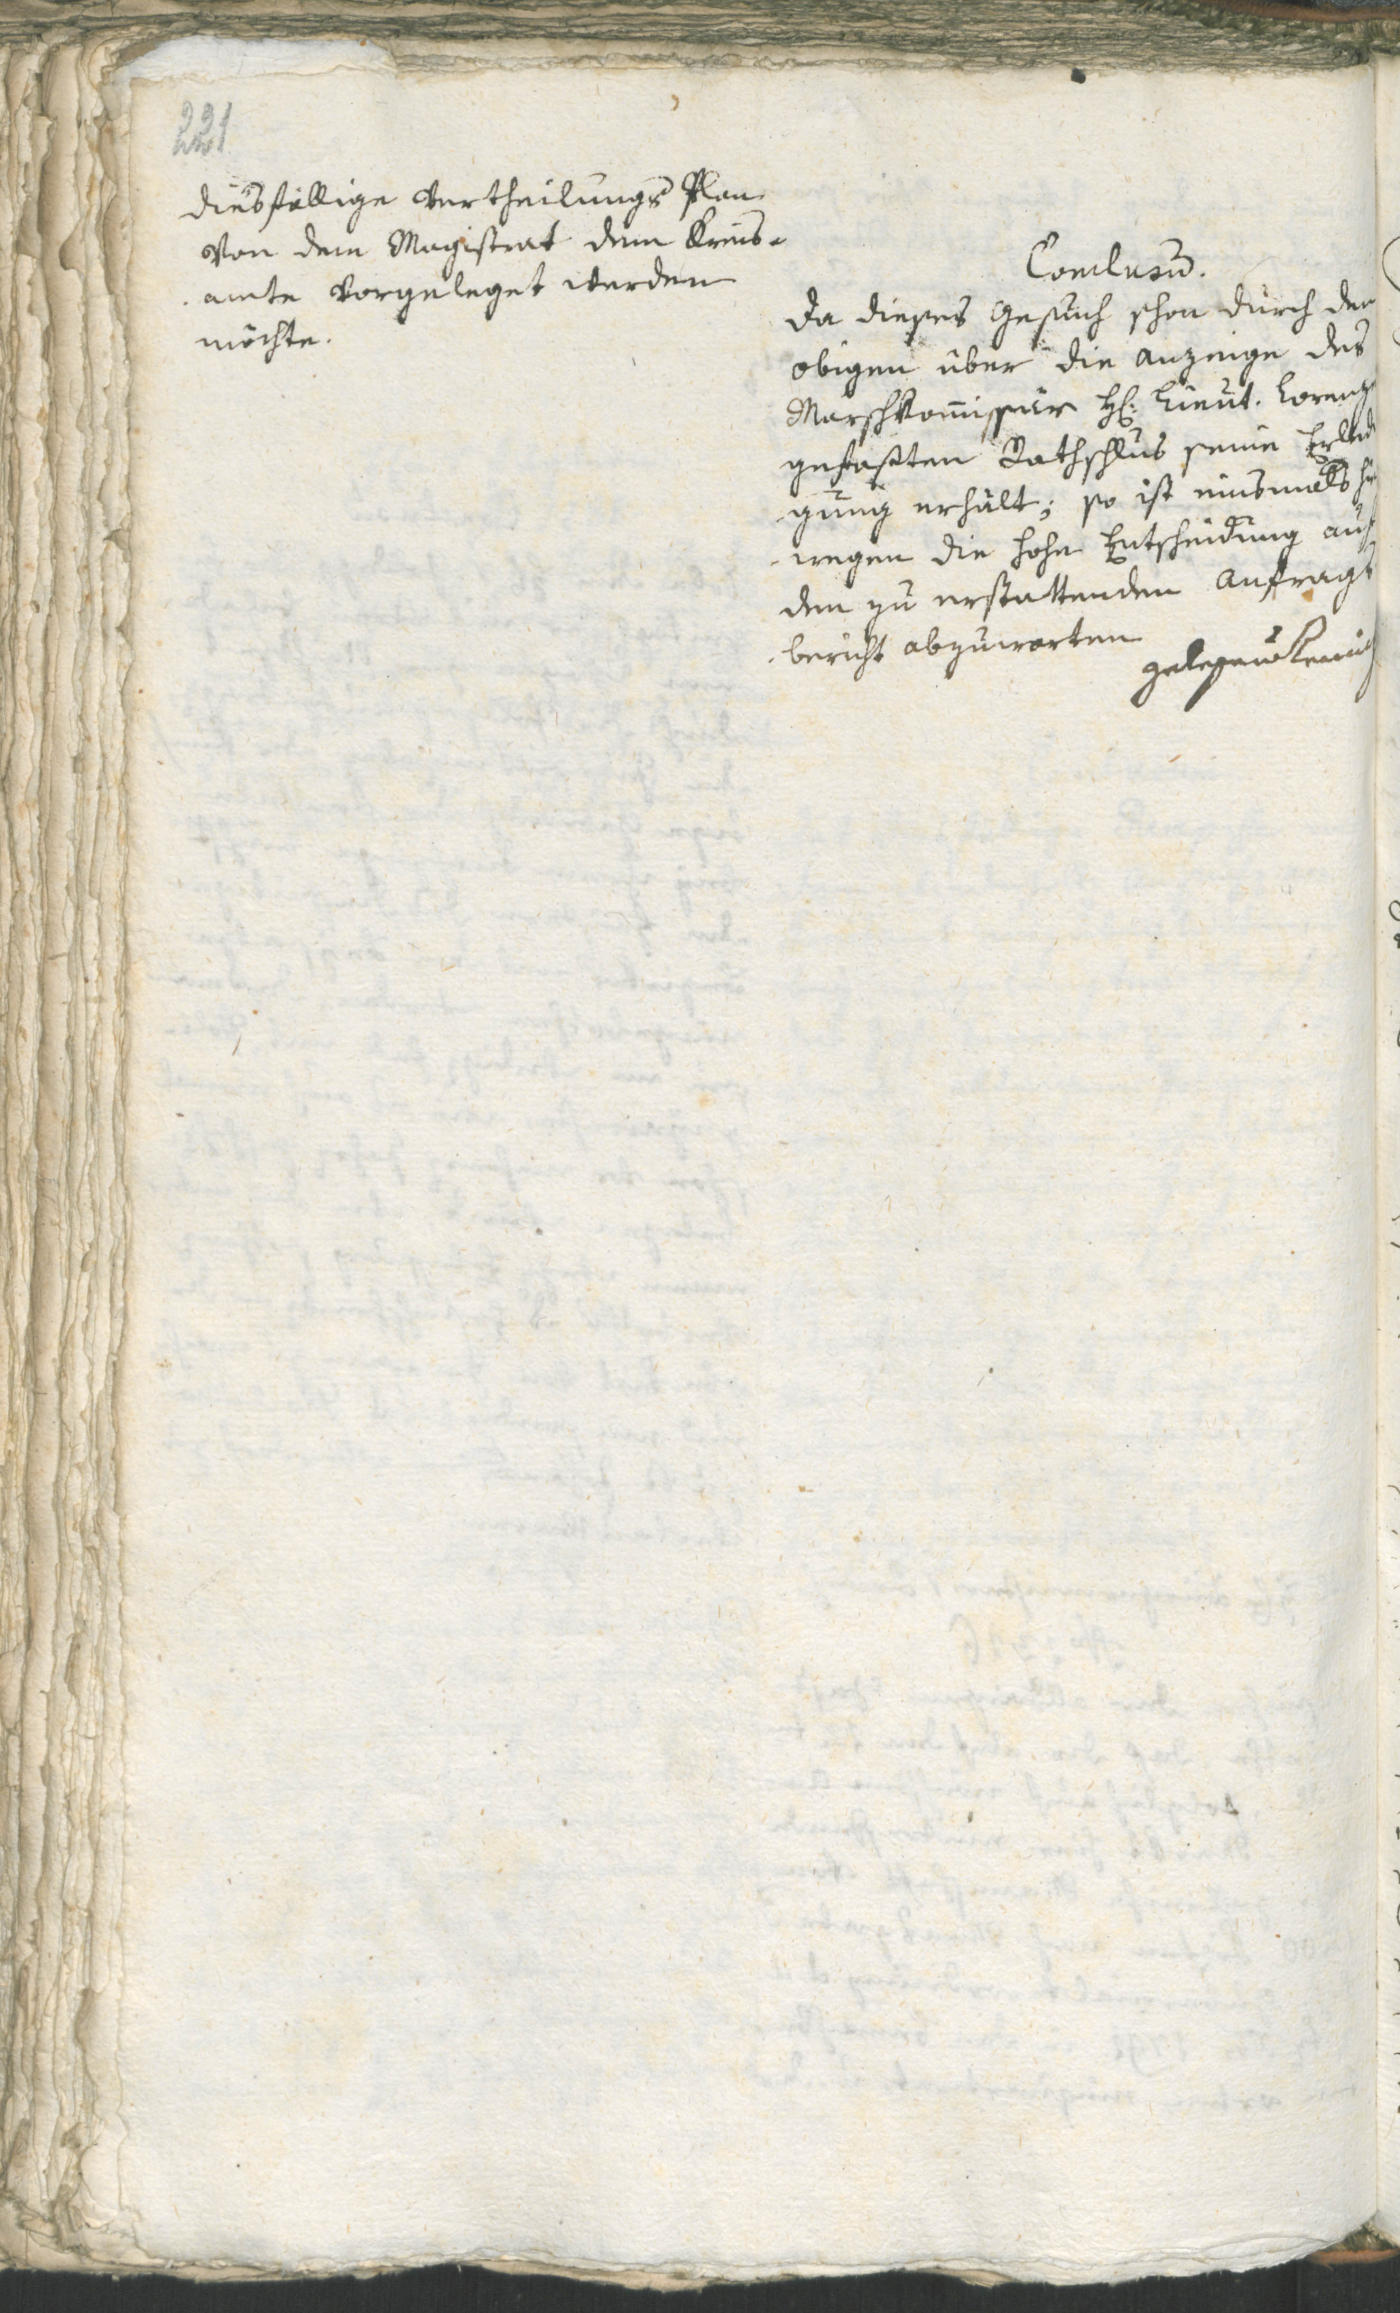 221
diesfällige Vertheilungs Plan
von dem Magistrat dem Kreis-
amte vorgeleget werden
möchte.
Conclusū.
Da dieses Gesuch schon durch den
obigen über die Anzeige des
Marschkom̄issär H: Lieut. Lorenz
gefaßten Rathschlus seine Erledi
gung erhält; so ist einsmals hie
wegen die hohe Entscheidung auf
den zu erstattenden Anfrags
bericht abzuwarten
gelesen